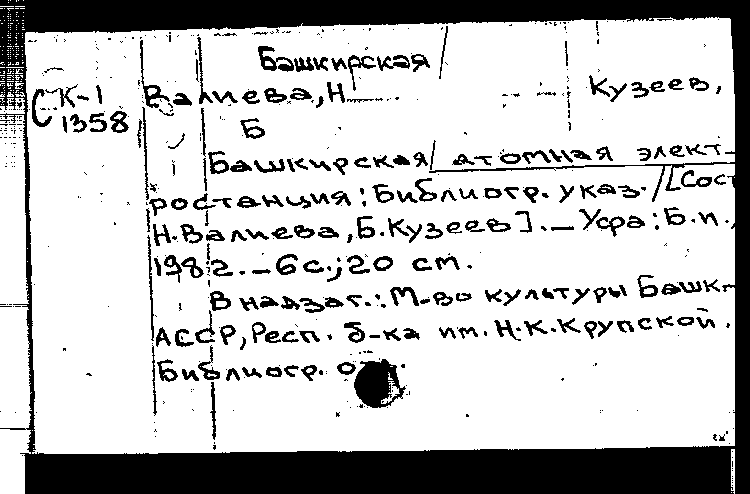 Башкирская
С К-1 Валиева, Н Кузеев,
1358 Б
Башкирская атомная элект-
ростанция: Библиогр. указ. / [Сост
Н. Валиева, Б. Кузеев]. — Уфа: Б. и.,
1982. — 6 с.; 20 см.
В надзаг.: М-во культуры Башк.
АССР, Респ. б-ка им. Н. К. Крупской.
Библиогр.